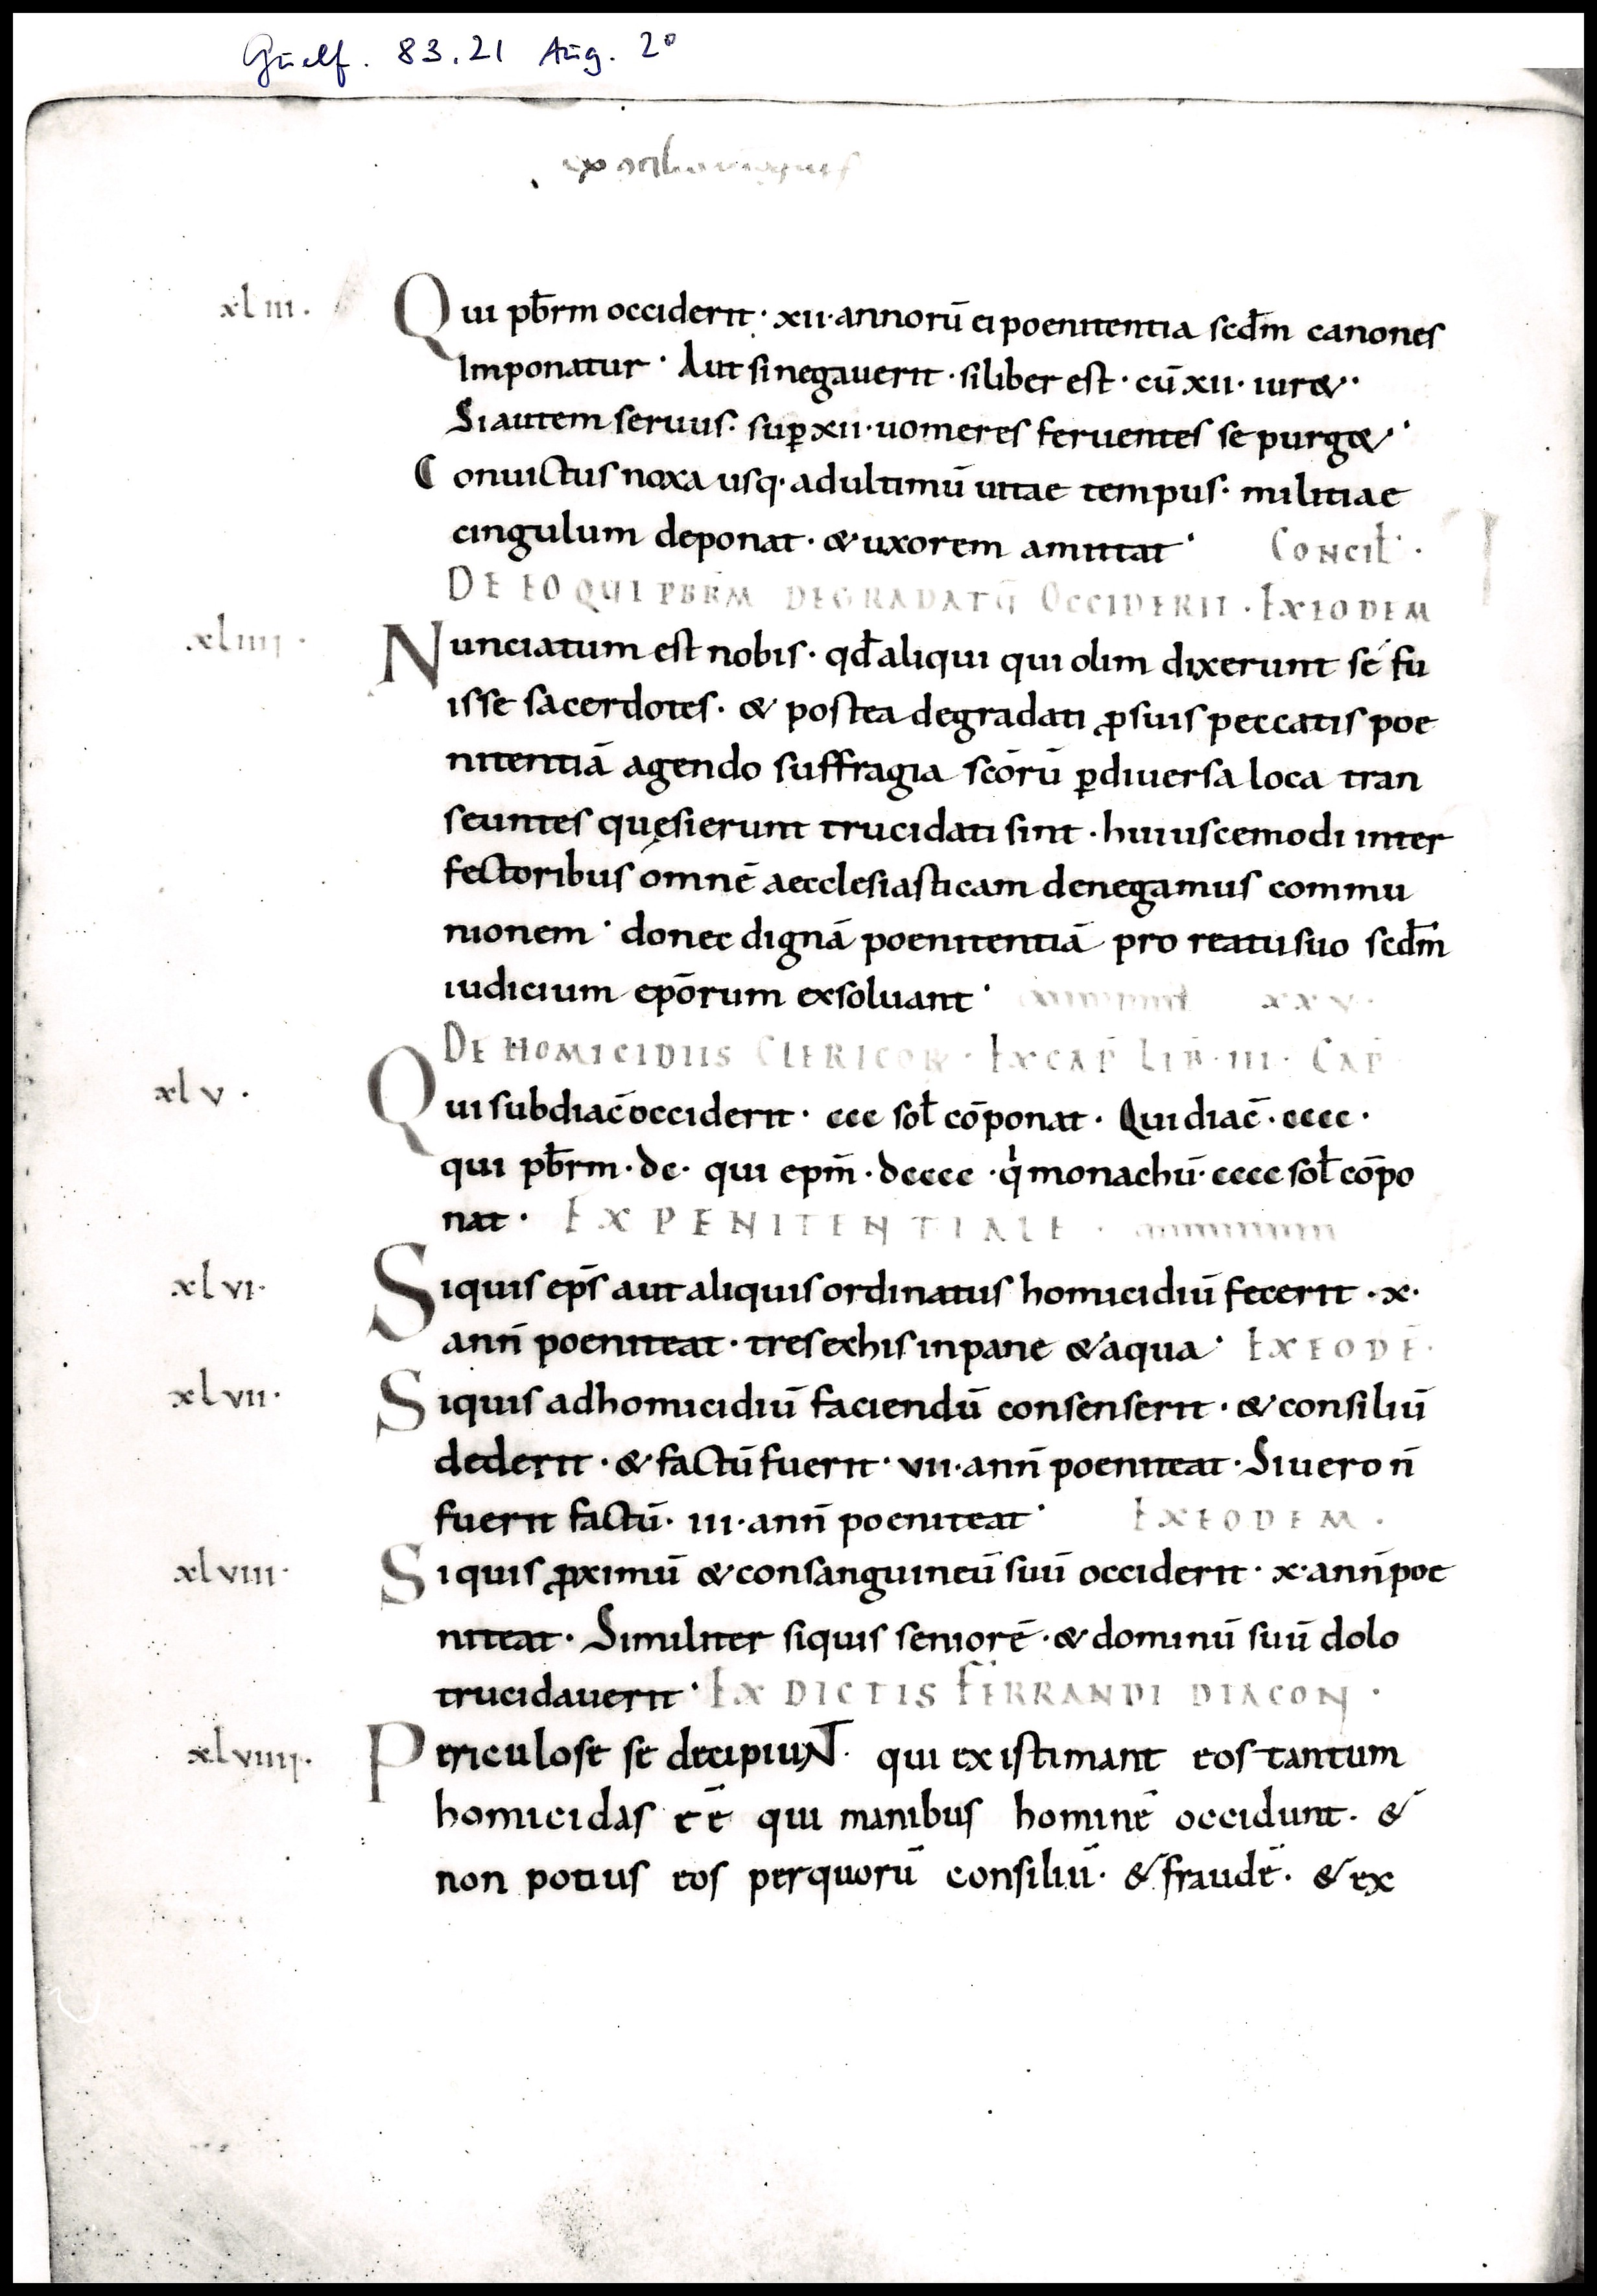 Guelf. 83.21 Aug. 2°
xliii. Qui pb̄rm occiderit · xii · annorū ei poenitentia scd̄m canones
Imponatur · Aut si negauerit · si liber est · cū xii · iur& ·
Si autem seruus · sup̱ xii · uomeres feruentes se purg& ·
Conuictus noxa usq · ad ultimū uitae tempus · militiae
cingulum deponat · & uxorem amittat · Concil̄ ·
DE EO QUI PBR̄M DEGRADATŪ OCCIDERIT · EX EODEM
xliiii · Nunciatum est nobis · qd̄ aliqui qui olim dixerunt se fu
isse sacerdotes · & postea degradati ꝓ suis peccatis poe
nitentiā agendo suffragia scōrū ꝑ diuersa loca tran
seuntes quęsierunt trucidati sint · huiuscemodi inter
fectoribus omnē aecclesiasticam denegamus commu
nionem · donec dignā poenitentiā pro reatu suo scd̄m
iudicium epōrum exsoluant · xxv ·
DE HOMICIDIIS CLERICOR · EX CAP̄ LIB̄ · III · CAP̄
xlv · Qui subdiac̄ occiderit · ccc sol̄ cōponat · Qui diac̄ · cccc ·
qui pb̄rm · dc · qui epm̄ · dcccc · qͥ monachū · cccc sol̄ cōpo
nat · EX PENITENTIALE ·
xlvi · Siquis ep̄s aut aliquis ordinatus homicidiū fecerit · x ·
ann̄ poeniteat · tres ex his in pane & aqua · EX EODĒ ·
xlvii · Siquis ad homicidiū faciendū consenserit · & consiliū
dederit · & factū fuerit · vii · ann̄ poeniteat · Si uero n̄
fuerit factū · iii · ann̄ poeniteat · EX EODEM ·
xlviii · Siquis ꝓximū & consanguineū suū occiderit · x · ann̄ poe
niteat · Similiter siquis seniorē · & dominū suū dolo
trucidauerit · EX DICTIS FERRANDI DIACON ·
xlviiii · Periculose se decipiuNT · qui existimant eos tantum
homicidas eē qui manibus hominē occidunt · &
non potius eos per quorū consiliū · & fraudē · & ex